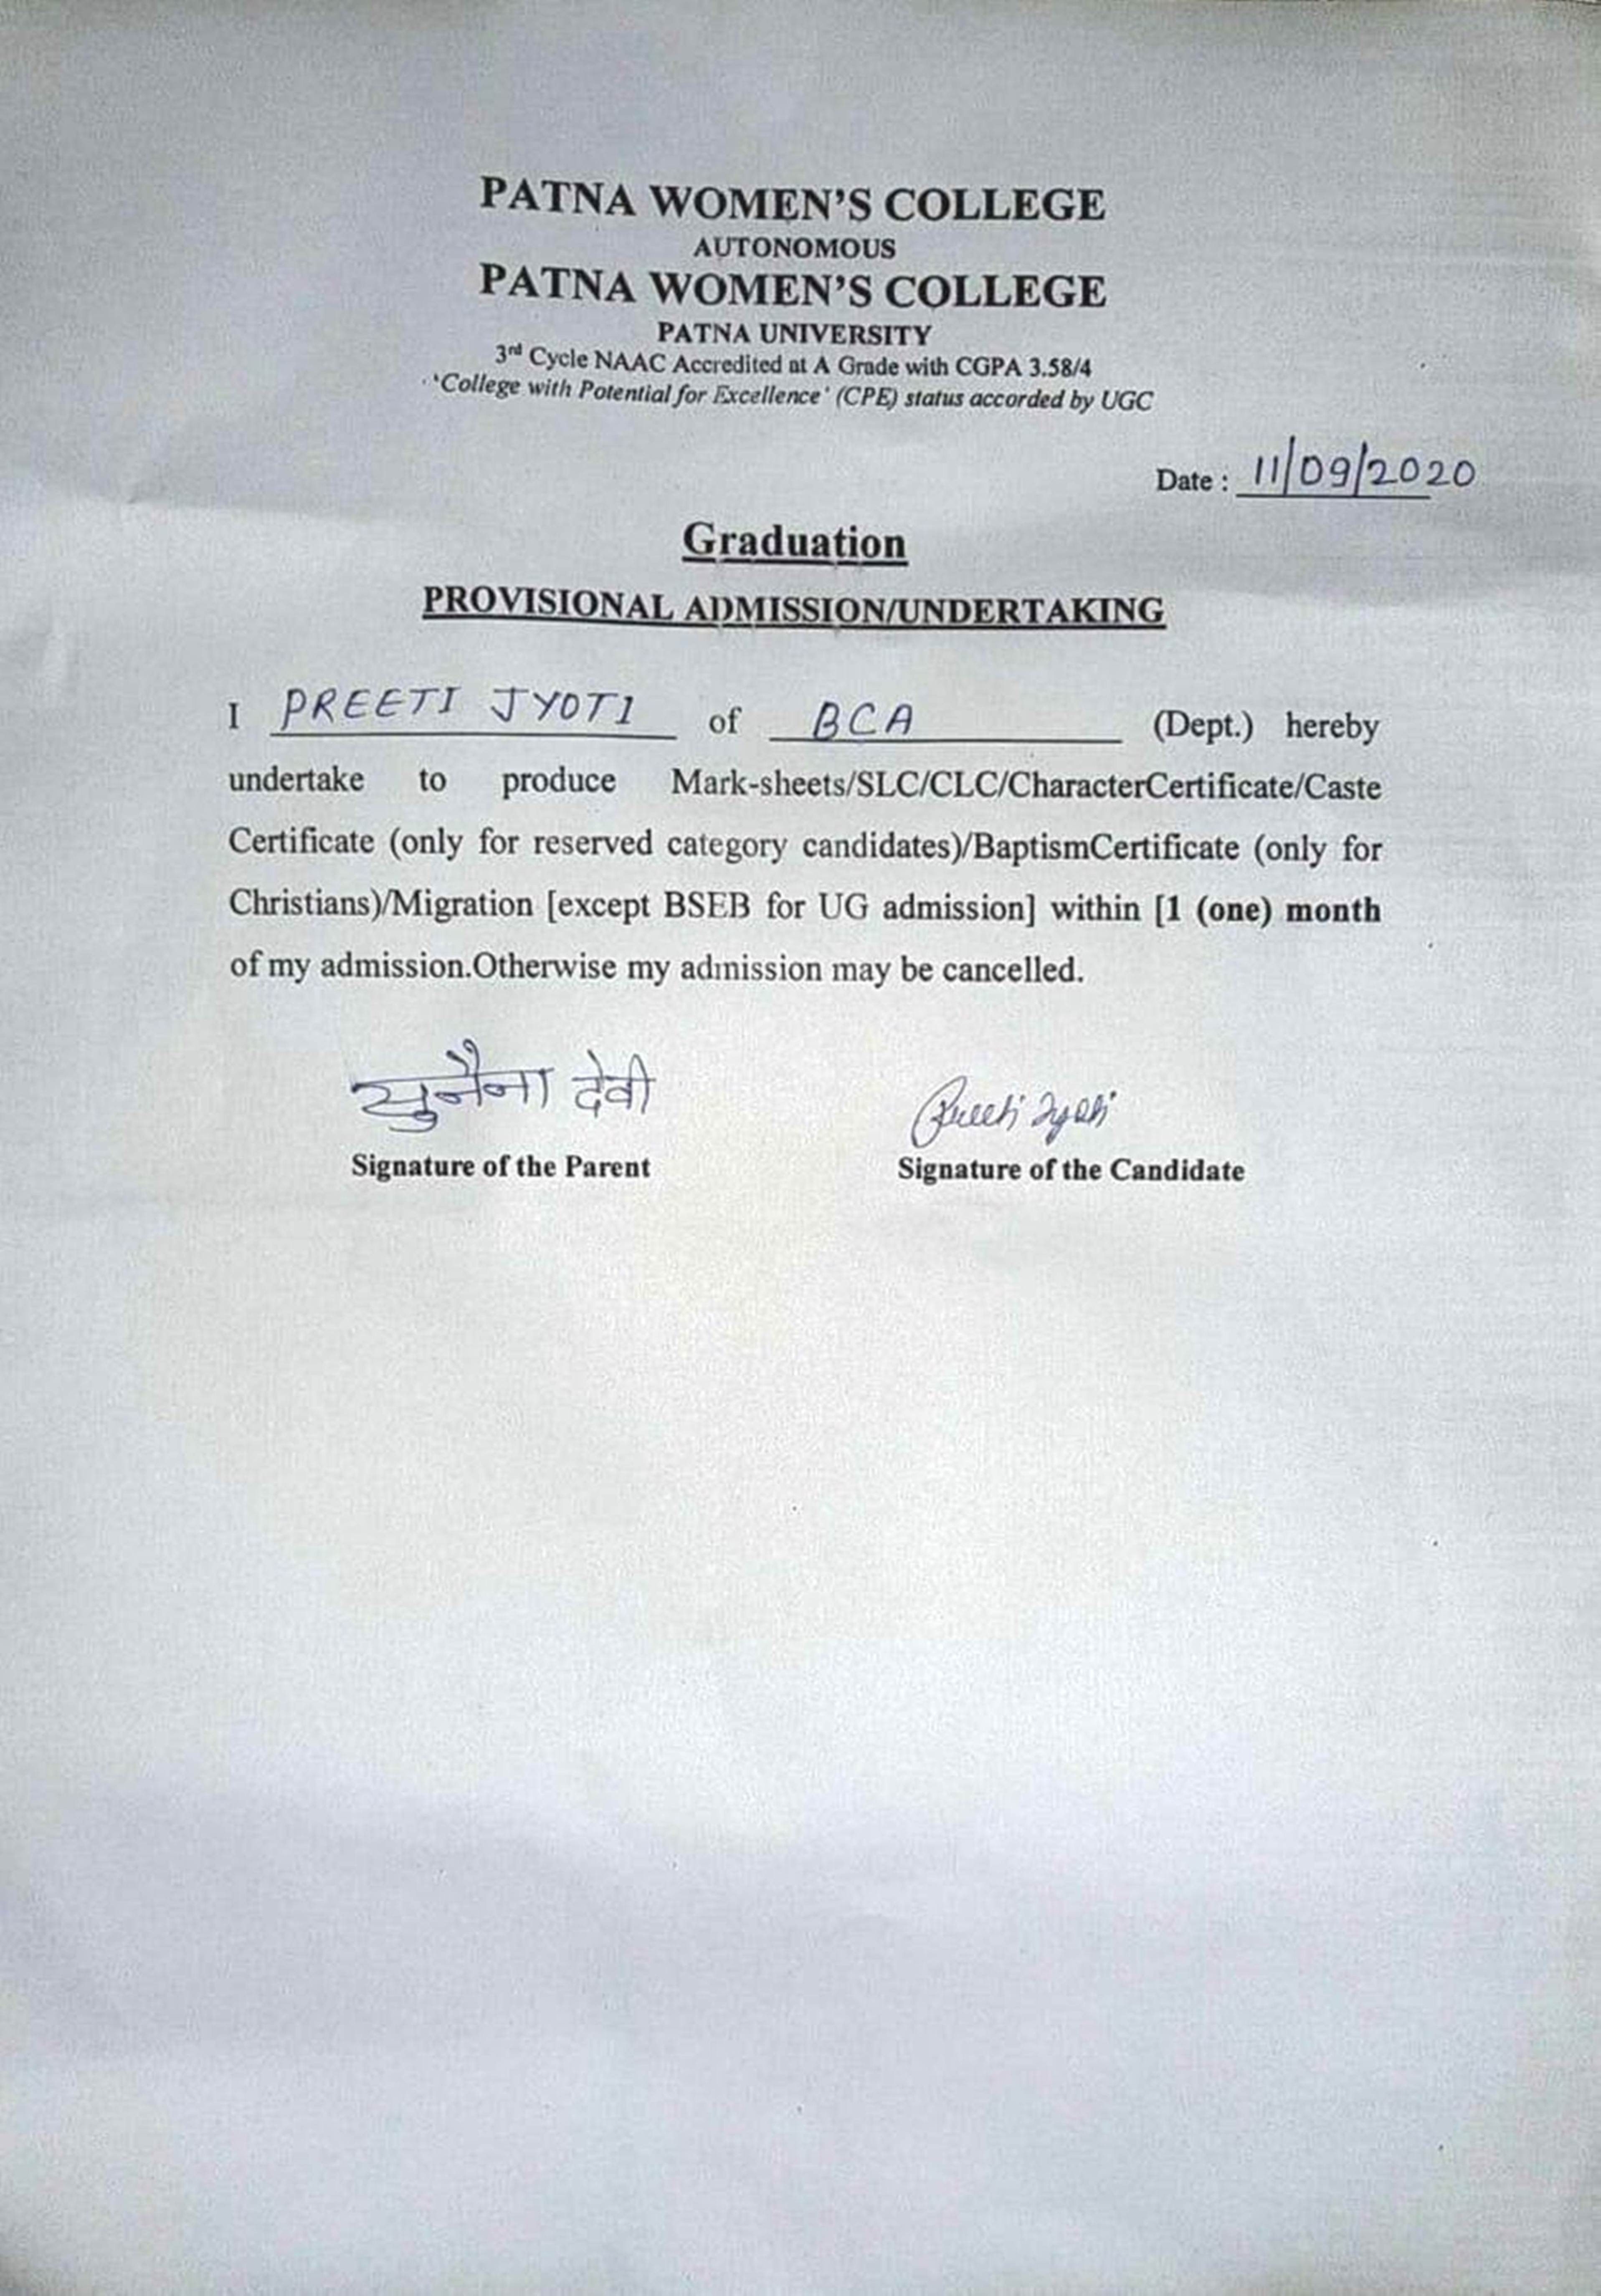 PATNA WOMEN'S COLLEGE
AUTONOMOUS
PATNA WOMEN'S COLLEGE
PATNA UNIVERSITY
3rd Cycle NAAC Accredited at A Grade with CGPA 3.58/4
'College with Potential for Excellence' (CPE) status accorded by UGC
Date : 11/09/2020
Graduation
PROVISIONAL ADMISSION/UNDERTAKING
I PREETI JYOTI of BCA (Dept.) hereby
undertake to produce Mark-sheets/SLC/CLC/CharacterCertificate/Caste
Certificate (only for reserved category candidates)/BaptismCertificate (only for
Christians)/Migration [except BSEB for UG admission] within [1 (one) month
of my admission.Otherwise my admission may be cancelled.
सुनैना देवी Preeti Jyoti
Signature of the Parent Signature of the Candidate